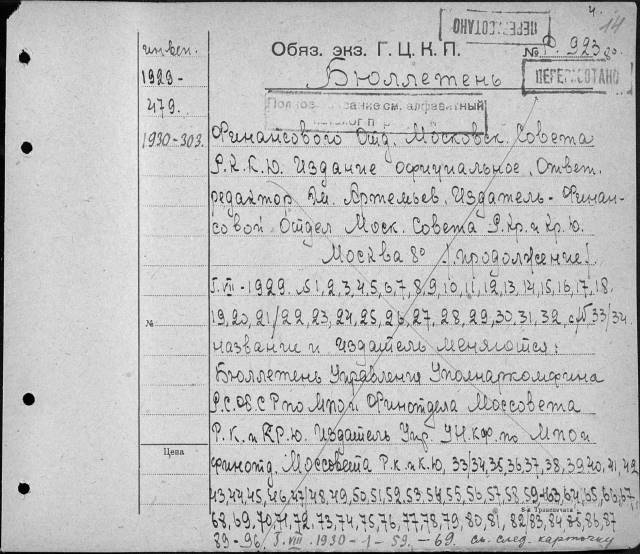 14
ПЕРЕГСОТАНО
инвен.
Обяз. экз. Г. Ц. К. П.
№ Ф. 923
1929-
Бюллетень
ПЕРЕГСОТАНО
479.
1930-303.
Финансового Отд. Московск. Совета
Р.К.К.Ю. Издание официальное. Ответ.
редактор Дм. Артемьев. Издатель - Финан-
совой Отдел Моск. Совета Р. Кр. и Кр. Ю.
Москва 8° /продолжение/.
Г. VII - 1929. № 1, 2, 3, 4, 5, 6, 7, 8, 9, 10, 11, 12, 13, 14, 15, 16, 17, 18.
№
19, 20, 21/22, 23, 24, 25, 26, 27, 28, 29, 30, 31, 32 с № 33/34
название и издатель меняются:
Бюллетень Управления Уполнаркомфина
Р.С.Ф.С.Р по М.П.О и Финотдела Моссовета
Р.К. и К.Р.Ю. Издатель Упр. УН.КФ. по М П О и
Цена
финотд. Моссовета Р.К. и К.Ю, 33/34, 35, 36, 37, 38, 39, 40, 41, 42
43, 44, 45, 46, 47/48, 49, 50, 51, 52, 53, 54, 55, 56, 57, 58, 59-63, 64, 65, 66, 67,
68, 69, 70, 71, 72, 73, 74, 75, 76, 77, 78, 79, 80, 81, 82/83, 84, 85, 86, 87
89-96, Г. VIII. 1930 - 1 - 59. - 69. см. след. карточку